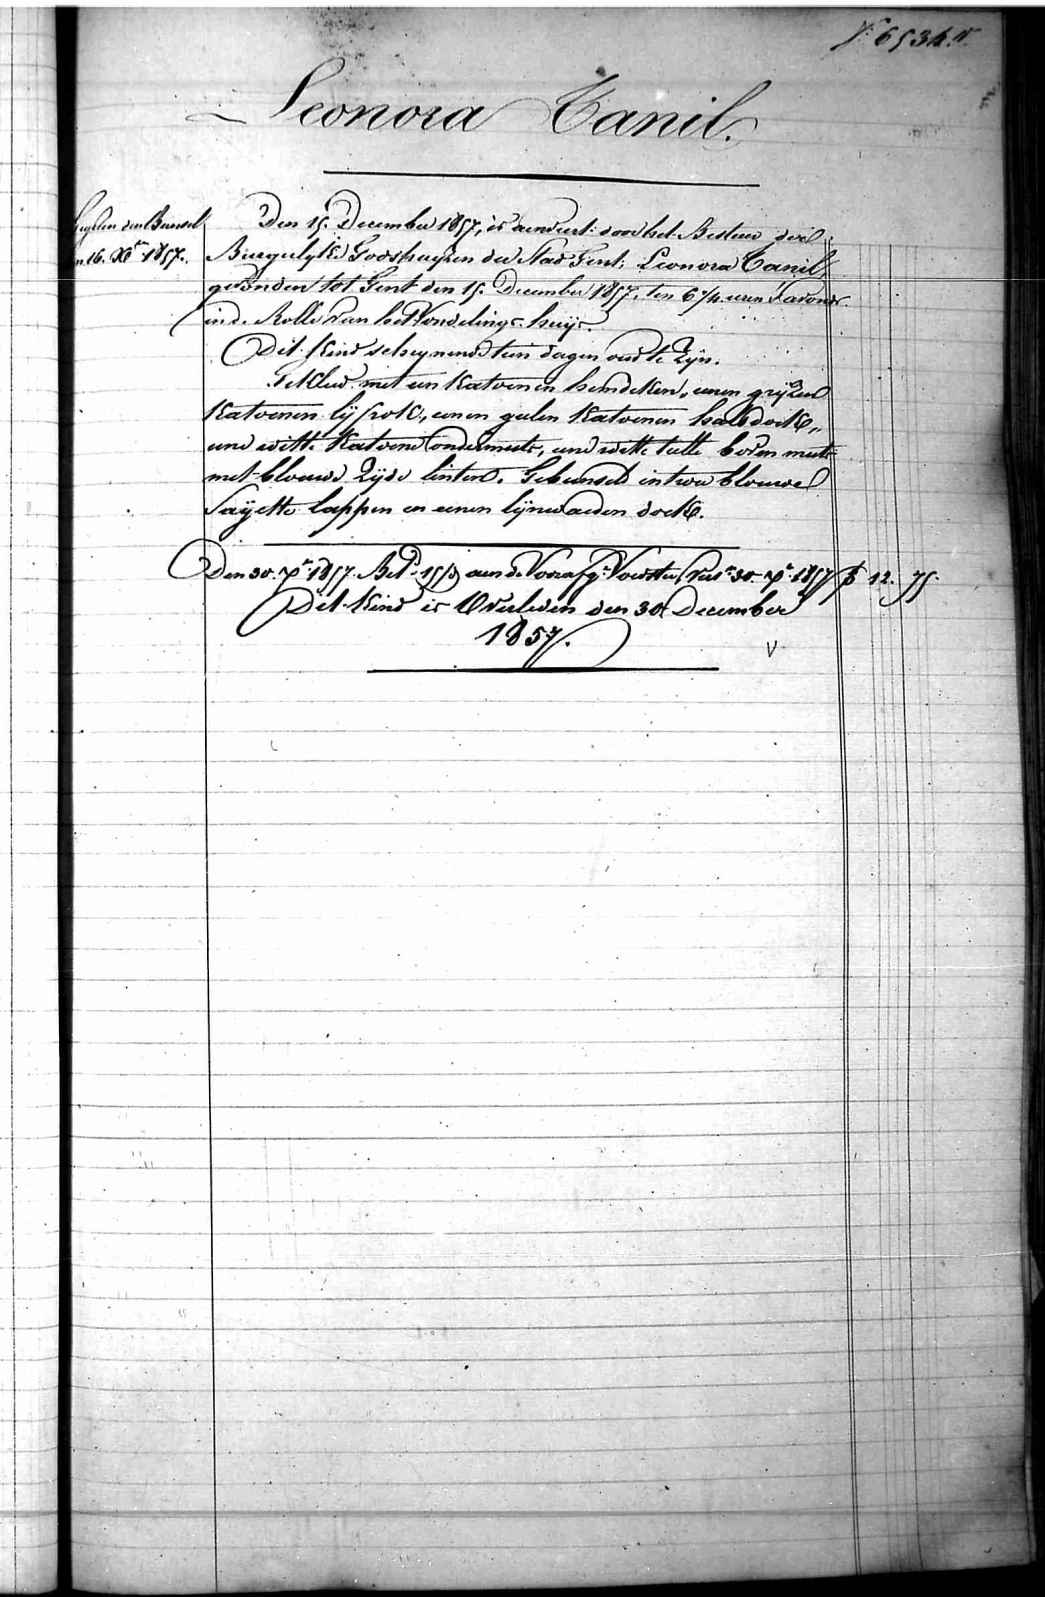 N° 6534.
Leonora Canil.
Den 15. December 1857, is aenveert door het Bestuer der
16. Xber 1857.
Burgerlyke Godshuyzen der Stad Gent; Leonora Canil,
gevonden tot Gent den 15. December 1857, ten 6 3/4 uren 's avonds
in de Rolle van het Vondelings-huys.
Dit Kind scheynende tien dagen oud te Zyn.
Gekleed met een Katoenen hemdeken, eenen gryzen
Katoenen lyfrok, eenen geelen Katoenen halsdoek,
eene witte Katoene ondermuts, eene witte tulle boven muts
met blouwe Zyde linten. Gebunseld in twee blouwe
Sayette lappen en eenen lynwaeden doek.
Den 30. Xr 1857. Bet. 15/3 aen de Voorsten 30. Xr 1857 12. 75.
Dit Kind is Overleden den 30 December
1857.